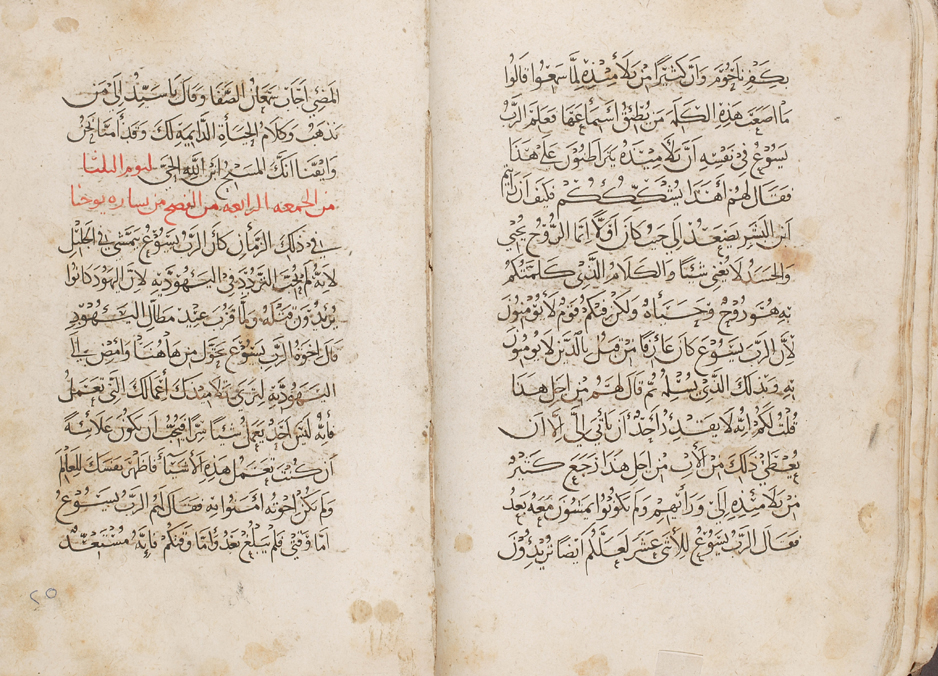 بكفرناحوم وان كثيرا من تلاميذه لما سمعوا قالوا
ما اصعب هذه الكلمه من يطيق استماعها فعلم الرب
يسوع في نفسه ان تلاميذه يتراطنون على هذا
فقال لهم اهذا يشككم فكيف ان رايتم
ابن البشر يصعد الى حيث كان اولا انما الروح يحيي
والجسد لا يغني شيئا والكلام الذي كلمتكم
به هو روح وحياه ولكن منكم قوم لا يومنون
لان الرب يسوع كان عارفا من قبل بالذين لا يومنون
به وبذلك الذي يسلمه ثم قال لهم من اجل هذا
قلت لكم انه لا يقدر احد ان ياتي الي الا ان
يعطى ذلك من الاب من اجل هذا رجع كثير
من تلاميذه الى ورائهم ولم يكونوا يمشون معه بعد
فقال الرب يسوع للاثني عشر لعلكم ايضا تريدون
المضي اجاب سمعان الصفا وقال يا سيد الى من
نذهب وكلام الحياة الدايمة لك وقد امنا نحن
وايقنا انك المسيح ابن الله الحي ليوم الثلثا
من الجمعه الرابعه من الفصح من بشاره يوحنا
في ذلك الزمان كان الرب يسوع يمشي في الجليل
لانه لم يحب التردد في اليهودية لان اليهود كانوا
يريدون قتله ولما قرب عيد مظال اليهود
قال اخوة الرب يسوع تحول من هاهنا وامض الى
اليهودية ليرى تلاميذك اعمالك التي تعمل
فانه ليس احد يعمل شيئا سرا فيحب ان يكون علانية
ان كنت تعمل هذه الاشيا فاظهر نفسك للعالم
ولم يكن اخوته امنوا به فقال لهم الرب يسوع
اما وقتي فلم يبلغ بعد واما وقتكم فانه مستعد
٢٥